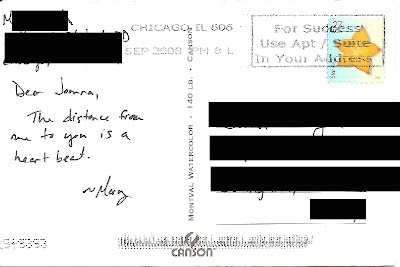 CHICAGO IL 606
SEP 2008 PM 8 L
For Success
Use Apt / Suite
In Your Address
27
Dear Joanna,
The distance from
me to you is a
heart beat.
~Mary
MONTVAL WATERCOLOR · 140 LB. · CANSON
CANSON